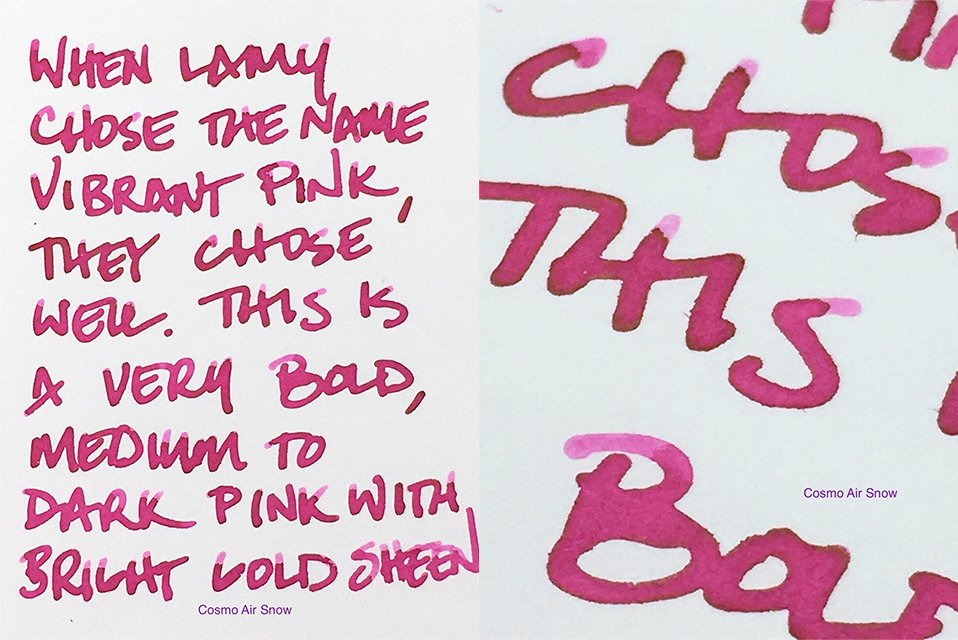 WHEN LAMY
CHOSE THE NAME
VIBRANT PINK,
THEY CHOSE
WELL. THIS IS
A VERY BOLD,
MEDIUM TO
DARK PINK WITH
BRIGHT GOLD SHEEN
Cosmo Air Snow
CHOS
THIS
BOL
Cosmo Air Snow